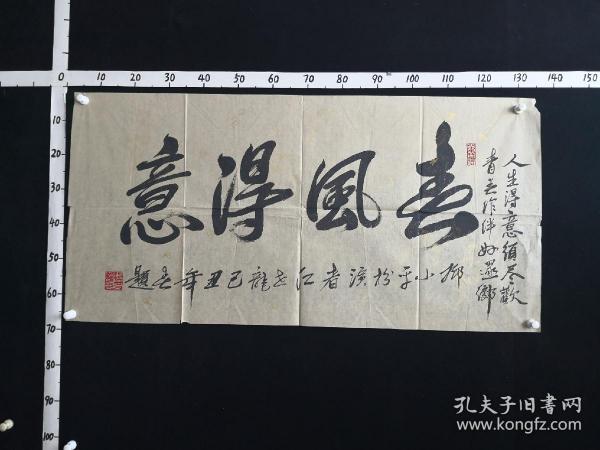 人生得意须尽欢
青春作伴好还乡
春風得意
邓小平扮演者江老龍己丑年春題
0 10 20 30 40 50 60 70 80 90 100 110 120 130 140 150
10
20
30
40
50
60
70
80
90
100
孔夫子旧書网
www.kongfz.com